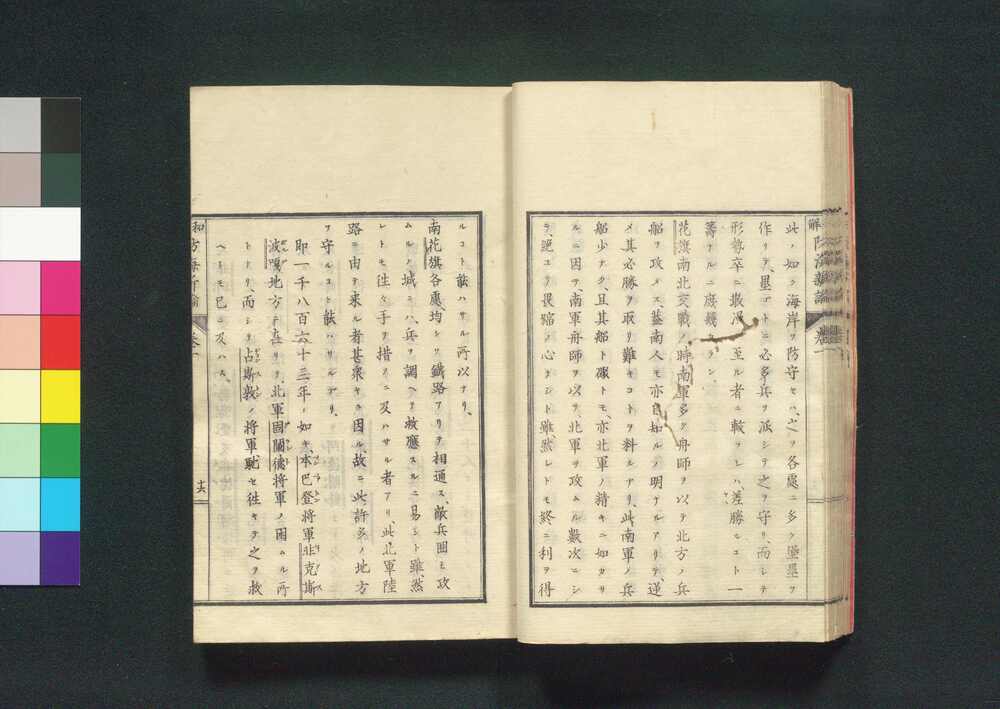 解 防海新論 巻一
此ノ如ク海岸ヲ防守セハ、之ヲ各處ニ多ク堡壘ヲ
作リテ、壘ゴトニ必多兵ヲ派シテ之ヲ守リ、而シテ
形勢卒ニ散漫ニ至ル者ニ較フレハ、差勝ルコト一
籌ナルニ庶幾カラン
花旗南北交戰ノ時南軍多ク舟師ヲ以テ北方ノ兵
船ヲ攻メス、蓋南人モ亦自知ルノ明アルアリテ逆
メ其必勝ヲ取リ難キコトヲ料ルナリ、此南軍ノ兵
船少ナク、且其船ト礟トモ、亦北軍ノ精キニ如カサ
ルニ因ヲ、南軍舟師ヲ以テ、北軍ヲ攻ムル數次ニシ
テ、絶エテ畏縮ノ心ナシト雖、然レトモ終ニ利ヲ得
ルコト能ハサル所以ナリ、
南花旗各處、均シク鐵路アリテ相通ス、敵兵囲ミ攻
ムルノ城ニハ、兵ヲ調ヘテ救應スルニ易シト雖、然
レトモ往々手ヲ措クニ及ハサル者アリ、此北軍陸
路ニ由テ來ル者甚衆キニ因ル、故ニ此許多ノ地方
ヲ守ルコト能ハサルナリ、
即一千八百六十三年ノ如キ、本巴登將軍非克斯
波嘎地方ニ在リテ、北軍固關德將軍ノ困ムル所
トナリ、而シテ占斯敦ノ將軍馳セ往キテ之ヲ救
ヘトモ已ニ及ハス、
和 防海新論 巻一 十六